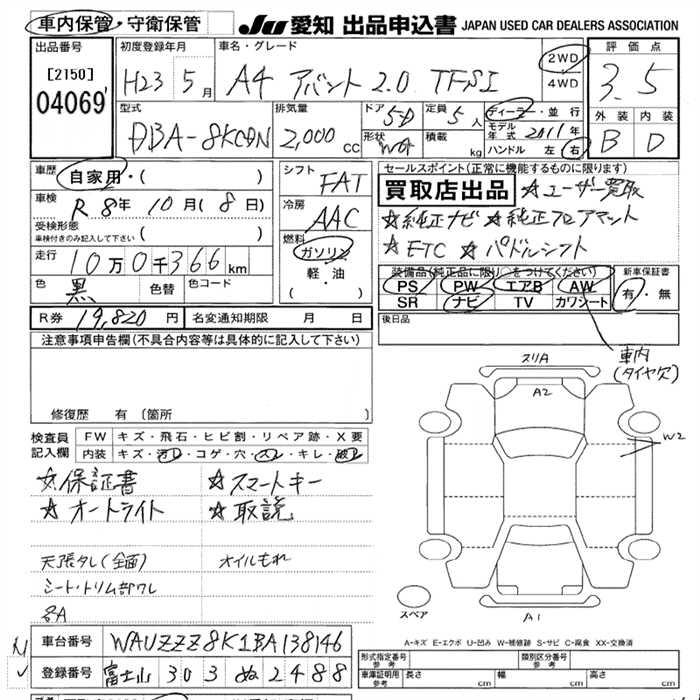 車内保管・守衛保管
JU 愛知 出品申込書 JAPAN USED CAR DEALERS ASSOCIATION
出品番号
[2150]
04069
初度登録年月
H23 5月
車名・グレード
A4 アバント 2.0 TFSI
2WD
4WD
評価点
3.5
外装 内装
B D
型式
DBA-8KCDN
排気量
2,000 cc
ドア
5D
形状
WG
定員
5人
積載
kg
ディーラー・並行
モデル年式 2011年
ハンドル 左 右
車歴
自家用・( )
車検
R 8年 10月(8日)
受検形態
車検付きのみ記入して下さい ( )
走行
10万0千366km
色
黒
色替
色コード
シフト
FAT
冷房
AAC
燃料
ガソリン
軽・油
( ・ )
セールスポイント(正常に機能するものに限ります)
買取店出品 ☆ユーザー買取
☆純正ナビ ☆純正フロアマット
☆ETC ☆パドルシフト
装備品(純正品に限り○をつけてください)
PS PW エアB AW
SR ナビ TV カワシート
新車保証書
有・無
R券 19,820円
名変通知期限 月 日
後日品
注意事項申告欄(不具合内容等は具体的に記入して下さい)
車内
(タイヤ欠)
スリA
A2
W2
修復歴 有 (箇所
検査員
記入欄
FW キズ・飛石・ヒビ割・リペア跡・X要
内装 キズ・汚レ・コゲ・穴・スレ・キレ・破レ
☆保証書 ☆スマートキー
☆オートライト ☆取説
天張タレ(全面) オイルもれ
シート・トリム部ワレ
各A
スペア
A1
A-キズ E-エクボ U-凹み W-補修跡 S-サビ C-腐食 XX-交換済
車台番号 WAUZZZ8K1BA138146
登録番号 富士山 303 ぬ 2488
型式指定番号
参考
類別区分番号
参考
車庫証明用
参考
長さ cm
幅 cm
高さ cm